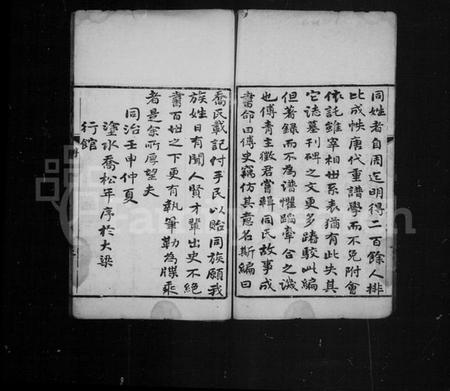 同姓者自周迄明得二百餘人排
比成帙唐代重譜學而不免附會
依託雖宰相世系表猶有此失其
它誌墓刊碑之文更多踳駁此編
但著錄而不為譜懼蹈牽合之譏
也傅青主徵君嘗輯同氏故事成
書命曰傅史竊仿其意名斯編曰
喬氏載記付手民以貽同族願我
族姓日有聞人賢才輩出史不絕
書百世之下更有執筆勒為牒乘
者是余所厚望夫
同治壬申仲夏
塗水喬松年序於大梁
行館